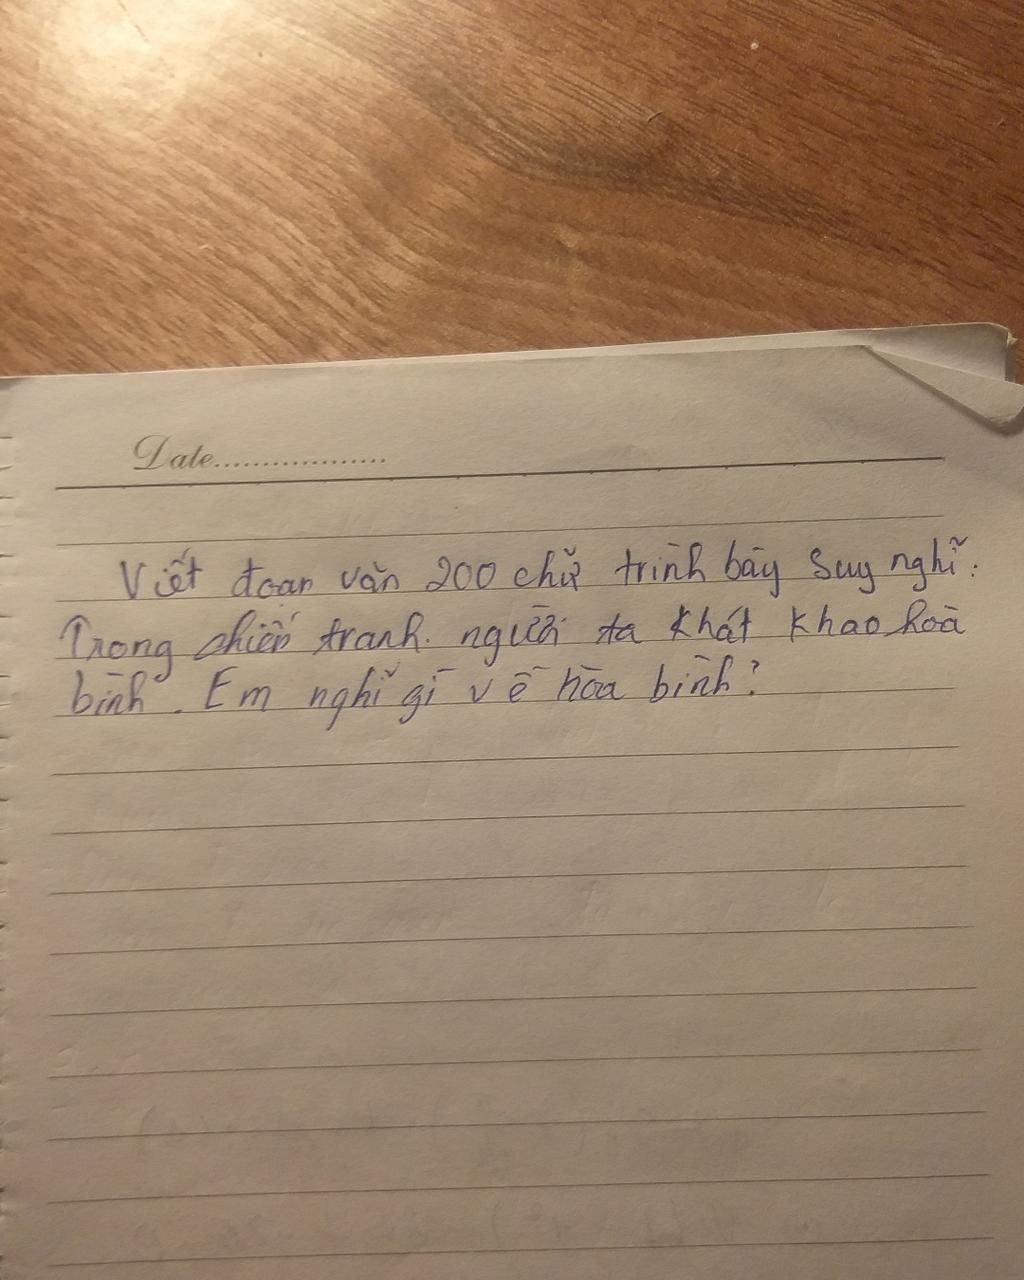 Date..................
Viết đoạn văn 200 chữ trình bày suy nghĩ:
Trong chiến tranh. người ta khát khao hoà
bình. Em nghĩ gì về hòa bình?